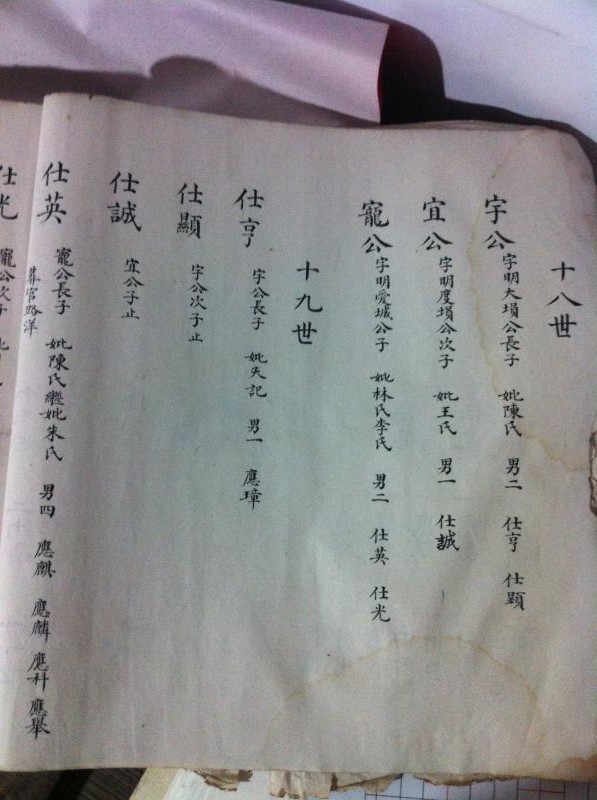 十八世
宇公 字明大塤公長子 妣陳氏 男二 仕亨 仕顯
宜公 字明度塤公次子 妣王氏 男一 仕誠
寵公 字明愛城公子 妣林氏李氏 男二 仕英 仕光
十九世
仕亨 字公長子 妣失記 男一 應璋
仕顯 字公次子止
仕誠 宜公子止
仕英 寵公長子 妣陳氏繼妣朱氏 男四 應麒 應麟 應科 應舉
葬官路洋
仕光 寵公次子